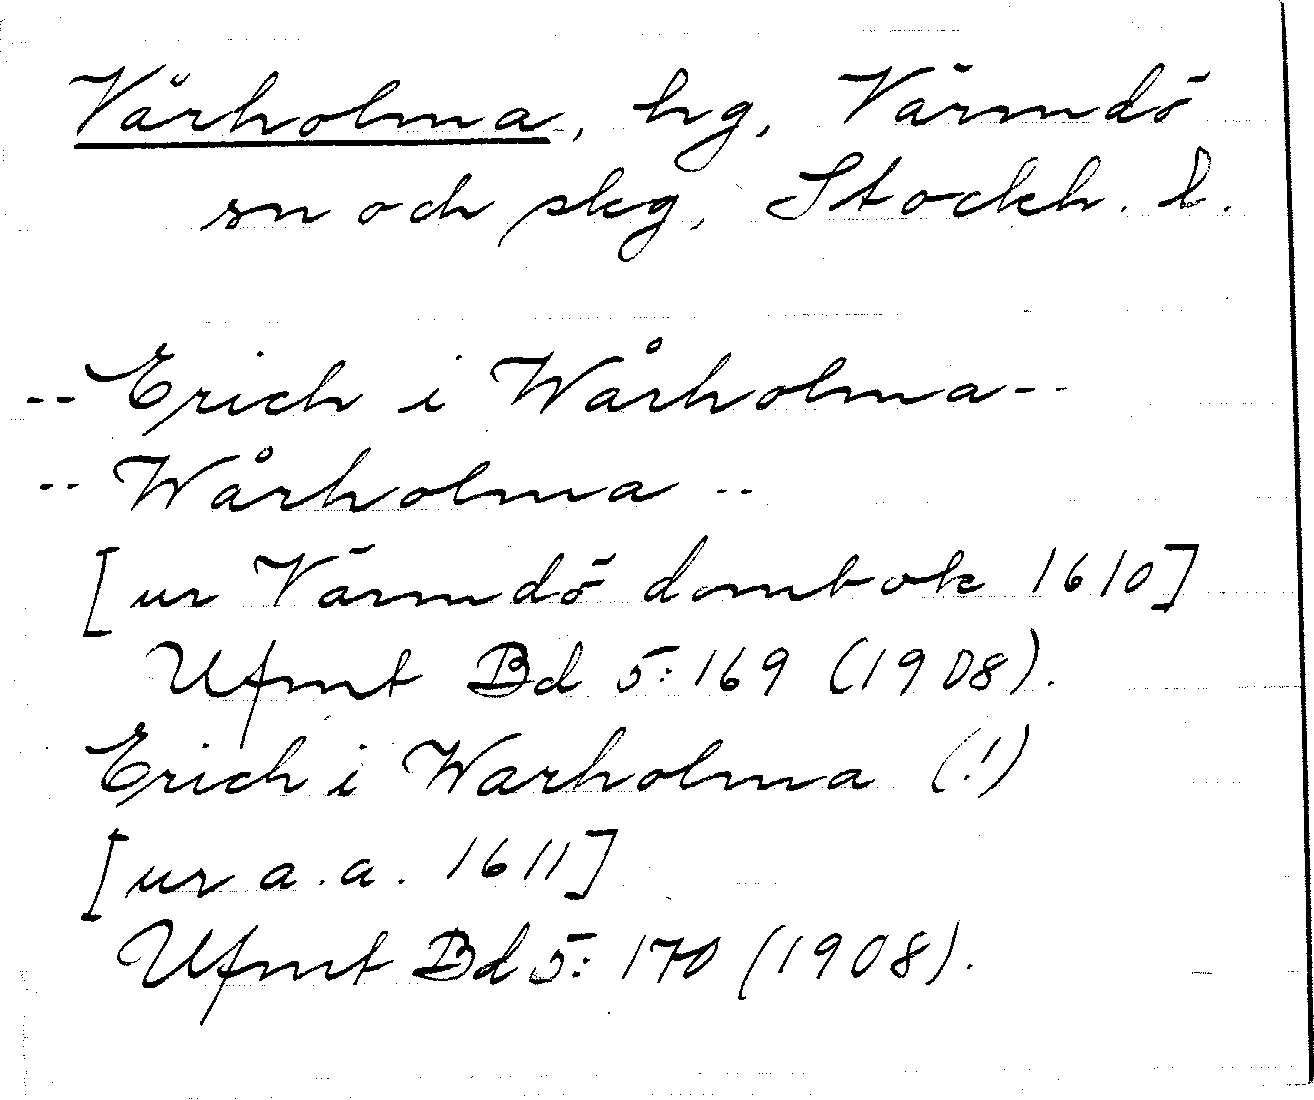 Vårholma, hg, Värmdö
sn och skg, Stockh. l.
-- Erich i Wårholma --
-- Wårholma --
[ur Värmdö dombok 1610]
Ufmt Bd 5: 169 (1908).
Erich i Warholma (!)
[ur a. a. 1611]
Ufmt Bd 5: 170 (1908).